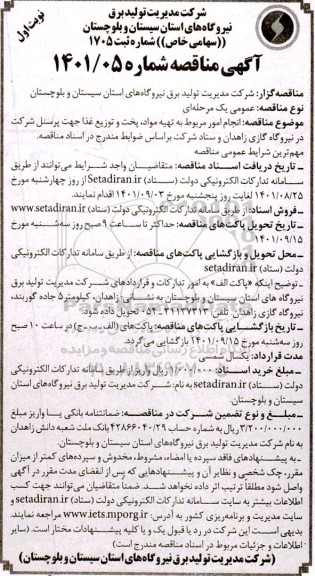 شرکت مدیریت تولید برق
نیروگاه‌های استان سیستان و بلوچستان
((سهامی خاص)) شماره ثبت ۱۷۰۵
نوبت اول
آگهی مناقصه شماره ۱۴۰۱/۰۵
مناقصه‌گزار: شرکت مدیریت تولید برق نیروگاه‌های استان سیستان و بلوچستان
نوع مناقصه: عمومی یک مرحله‌ای
موضوع مناقصه: انجام امور مربوط به تهیه مواد، پخت و توزیع غذا جهت پرسنل شرکت
در نیروگاه گازی زاهدان و ستاد شرکت براساس ضوابط مندرج در اسناد مناقصه.
مهم‌ترین شرایط عمومی مناقصه
ـ تاریخ دریافت اسناد مناقصه: متقاضیان واجد شرایط می‌توانند از طریق
سامانه تدارکات الکترونیکی دولت (ستاد) Setadiran.ir از روز چهارشنبه مورخ
۱۴۰۱/۰۸/۲۵ لغایت روز پنجشنبه مورخ ۱۴۰۱/۰۹/۰۳ اقدام نمایند.
ـ فروش اسناد: از طریق سامانه تدارکات الکترونیکی دولت (ستاد) www.setadiran.ir
ـ تاریخ تحویل پاکت‌های مناقصه: حداکثر تا ساعت ۹ صبح روز سه‌شنبه مورخ
۱۴۰۱/۰۹/۱۵
ـ محل تحویل و بازگشایی پاکت‌های مناقصه: از طریق سامانه تدارکات الکترونیکی
دولت (ستاد) setadiran.ir
ـ توضیح اینکه «پاکت الف» به امور تدارکات و قراردادهای شرکت مدیریت تولید برق
نیروگاه های استان سیستان و بلوچستان به نشانی زاهدان، کیلومتر ۵ جاده گوربند،
نیروگاه گازی زاهدان تلفن: ۳۱۱۳۷۳۱۳-۰۵۴ تحویل شود.
ـ تاریخ بازگشایی پاکت‌های مناقصه: پاکت‌های (الف.ب.ج) در ساعت ۱۰ صبح
روز سه‌شنبه مورخ ۱۴۰۱/۰۹/۱۵ بازگشایی می‌گردد.
مدت قرارداد: یکسال شمسی
ـ مبلغ خرید اسناد: ریال واریز از طریق سامانه تدارکات الکترونیکی
دولت (ستاد) setadiran.ir به نام: شرکت مدیریت تولید برق نیروگاه‌های استان
سیستان و بلوچستان.
ـ مبلغ و نوع تضمین شرکت در مناقصه: ضمانتنامه بانکی یا واریز مبلغ
۳/۲۰۰/۰۰۰/۰۰۰ ریال به شماره حساب ۴۲۸۶۶۰۴۰۲۹ بانک ملت شعبه دانش زاهدان
به نام شرکت مدیریت تولید برق نیروگاه‌های استان سیستان و بلوچستان.
ـ به پیشنهادهای فاقد سپرده یا امضاء، مشروط، مخدوش و سپرده‌های کمتر از میزان
مقرر، چک شخصی و نظایر آن و پیشنهادهایی که پس از انقضای مدت مقرر در آگهی
واصل شود مطلقا ترتیب اثر داده نخواهد شد. ضمناً متقاضیان می‌توانند جهت کسب
اطلاعات بیشتر به سایت سامانه تدارکات الکترونیکی دولت (ستاد) setadiran.ir و
سایت مدیریت و برنامه‌ریزی کشور به آدرس: www.iets.mporg.ir مراجعه نمایند.
بدیهی است این شرکت در رد یا قبول یک و یا کلیه پیشنهادات مختار است. (سایر
اطلاعات و جزئیات مربوط در اسناد مناقصه مندرج است)
(شرکت مدیریت تولید برق نیروگاه‌های استان سیستان و بلوچستان)